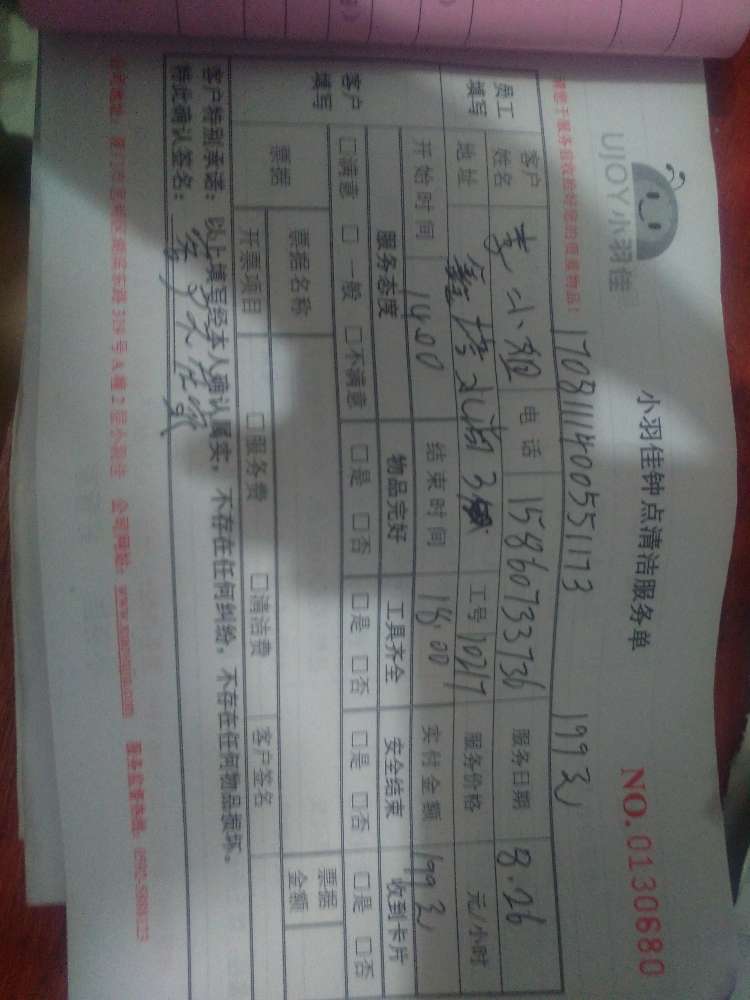 UJOY小羽佳
小羽佳钟点清洁服务单
NO. 0130680
请您于服务前收拾好您的贵重物品!
1708111400551173
199元
员工填写
客户姓名 李小姐 电话 15860733736 服务日期 8.26
地址 工号 10217 服务价格 元/小时
开始时间 14.00 结束时间 18.00 实付金额 199元
客户填写
服务态度 物品完好 工具齐全 安全结束 收到卡片
□满意 □一般 □不满意 □是 □否 □是 □否 □是 □否 □是 □否
票据
票据名称 票据金额
开票项目 □服务费 □清洁费 客户签名
客户特别承诺: 以上填写经本人确认属实, 不存在任何纠纷, 不存在任何物品损坏。
特此确认签名:
公司地址: 厦门市思明区 号A幢2层小羽佳 公司网址: 服务监督热线: